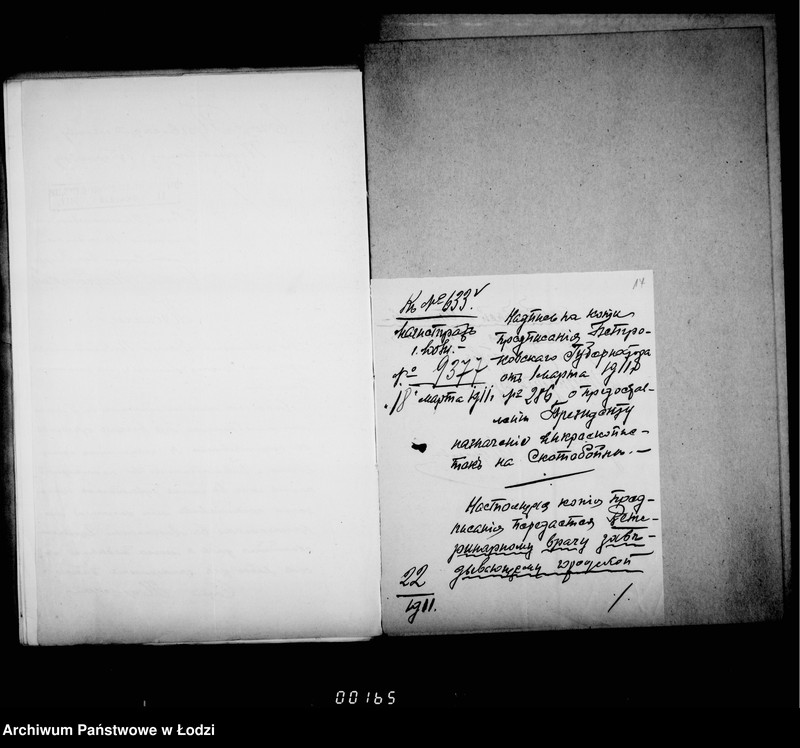 Къ № 633.
Магистратъ
г. Лодзи.
№ 9377
18 марта 1911
Надпись на копіи
предписанія Петро-
ковскаго Губернатора
отъ 1 марта 1911
№ 286, о предостав-
леніи Президенту
назначенія микроскопис-
токъ на Скотобойни.
Настоящая копія пред-
писанія передается Вете-
ринарному врачу завѣ-
дывающему городской
22
1911.
00165
Archiwum Państwowe w Łodzi